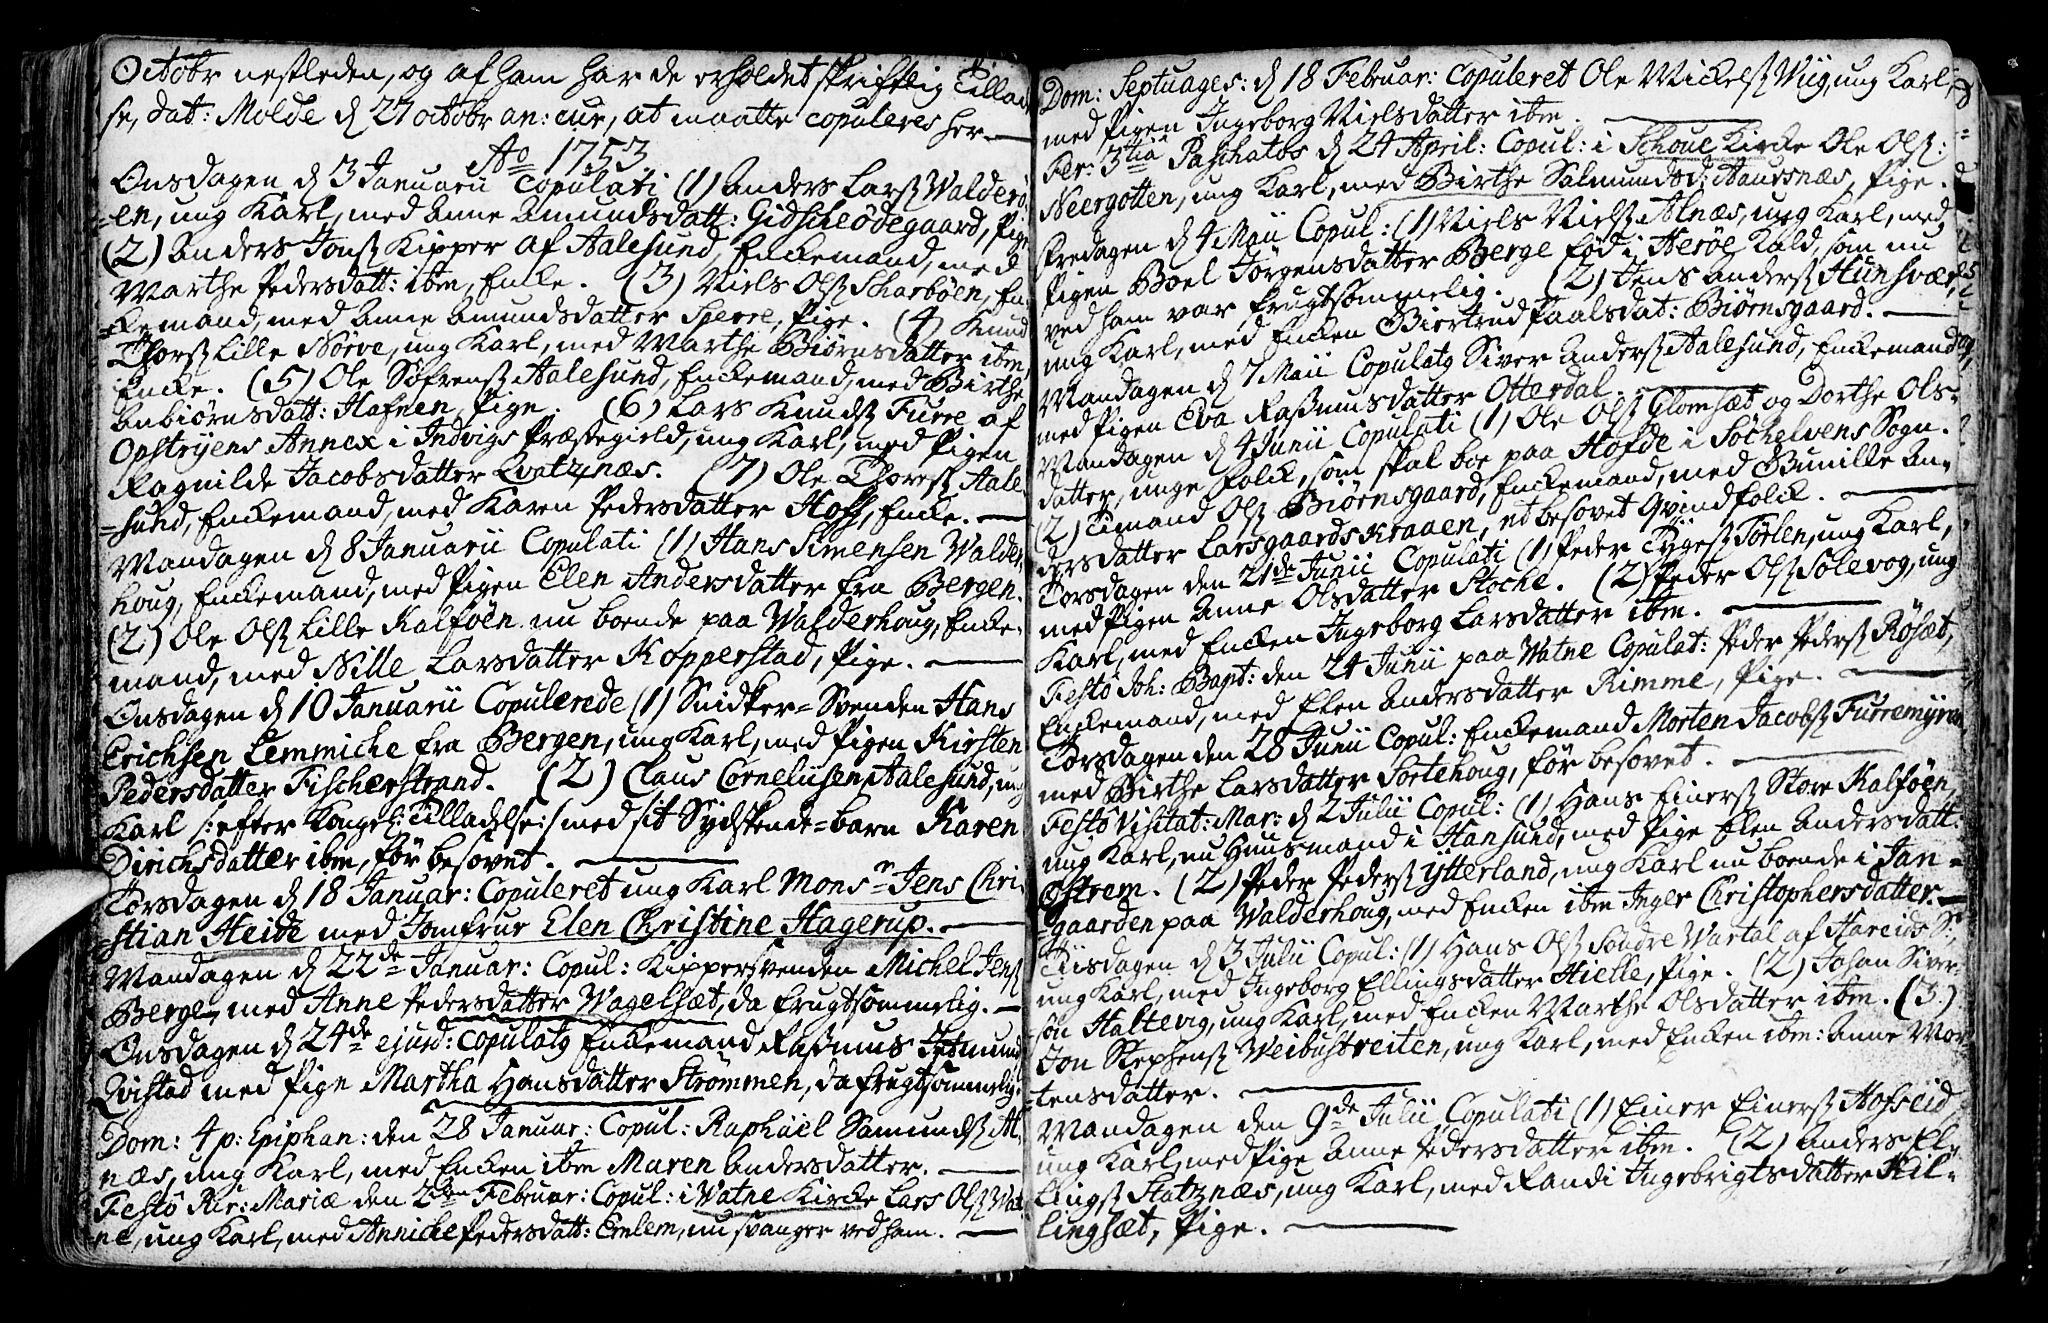 Octobr nestleden, og af ham har de erholdet skriftlig Tillad
se, dat: Molde d 27 octobr an: cur, at maatte copuleres her
Ao 1753
Onsdagen d 3 Januarii Copulati (1) Anders Larsß Walderö
en, ung Karl, med Anne Amundsdatt: Gidscheødegaard, Pige
(2) Anders Jonsß Kipper af Aalesund, Enckemand, med
Marthe Pedersdatt: ibm, Encke. (3) Niels Olsß Scharböen, En
ckemand, med Anne Amundsdatter Sperre, Pige. (4) Knud
Thorsß Lille Nörve, ung Karl, med Marthe Biörnsdatter ibm,
Encke. (5) Ole Söfrensß Aalesund, Enckemand, med Birthe
Anbiörnsdatt: Hafnen, Pige. (6) Lars Knudsß Furre af
Opstryens Annex i Indvigs Præstegield, ung Karl, med Pigen
Ragnilde Jacobsdatter Qvatznæs. (7) Ole Thoresß Aale
=sund, Enckemand, med Karen Pedersdatter Hoff, Encke.
Mandagen d 8 Januarii Copulati (1) Hans Simensen Walder
houg, Enckemand, med Pigen Elen Andersdatter fra Bergen.
(2) Ole Olsß Lille Kalföen nu boende paa Walderhoug, Encke=
mand, med Nille Larsdatter Kopperstad, Pige.
Onsdagen d 10 Januarii Copulerede (1) Snidker=Svenden Hans
Erichsen Lemmiche fra Bergen, ung Karl, med Pigen Kirsten
Pedersdatter Fischerstrand. (2) Claus Cornelusen Aalesund, ung
Karl /: efter Kongel: Tilladelse :/ med sit Sydskende=barn Karen
Dirichsdatter ibm, för besovet.
Torsdagen d 18 Januar: Copuleret ung Karl Monsr Jens Chri
stian Heide med Jomfrue Elen Christine Hagerup.
Mandagen d 22de Januar: Copul: Kippersvenden Michel Jensß
Berge, med Anne Pedersdatter Wagelsæt, da frugtsommelig.
Onsdagen d 24de ejusd: Copulatg Enckemand Rasmus Tetmund
Qvistad med Pige Martha Hansdatter Strömmen, da frugtsommelig.
Dom: 4 p: Epiphan: den 28 Januar: Copul: Raphael Samundsß Al
næs, ung Karl, med Encken ibm Maren Andersdatter.
Festo Pur: Mariæ den 2den Februar: Copul: i Watne Kircke Lars Olsß Wat
ne, ung Karl, med Anniche Pedersdatt: Emlem, nu svanger ved ham.
Dom: Septuages: d 18 Februar: Copuleret Ole Mickelsß Wiig, ung Karl,
med Pigen Ingeborg Nielsdatter ibm.
Fer: 3tia Paschatos d 24 April: Copul: i Schoue Kircke Ole Olsß:
Neergotten, ung Karl, med Birthe Salmundsd: Aaursnæs, Pige.
Fredagen d 4 Maii Copul: (1) Niels Nielsß Alnæs, ung Karl, med
Pigen Boel Jörgensdatter Berge föd i Heröe Kald, som nu
ved ham var frugtsommelig. (2) Jens Andersß Hunsvær,
ung Karl, med Encken Biertrud Paalsdat: Biörnsgaard.
Mandagen d 7 Maii Copulatg Siver Andersß Aalesund, Enckemand
med Pigen Eva Rasmusdatter Otterdal.
Mandagen d 4 Junii Copulati (1) Ole Olsß Glomsæt og Dorthe Ols=
datter, unge Folck, som skal boe paa Hofde i Söchelvens Sogn.
(2) Timand Olsß Biörnsgaard, Enckemand, med Gunille An=
dersdatter Larsgaardskraaen, et besovet Qvindfolck.
Torsdagen den 21de Junii Copulati (1) Peder Tygesß Törlen, ung Karl,
med Pigen Anne Olsdatter Stoche. (2) Peder Olsß Solevog, ung
Karl, med Encken Ingeborg Larsdatter ibm.
Festo Joh: Bapt: den 24 Junii paa Watne Copulat: Peder Pedersß Rösæt,
Enckemand, med Elen Andersdatter Rimme, Pige.
Torsdagen den 28 Junii Copul: Enckemand Morten Jacobsß Furremyren
med Birthe Larsdatter Sortehoug, för besovet.
Festo Visitat: Mar: d 2 Julii Copul: (1) Hans Einersß Store Kalföen,
ung Karl, nu Huusmand i Hansund, med Pige Elen Andersdatt:
Östrem. (2) Peder Pedersß Ytterland, ung Karl nu boende i Jan=
gaarden paa Walderhoug, med Encken ibm Inger Christophersdatter.
Tiisdagen d 3 Julii Copul: (1) Hans Olsß Söndre Wartal af Hareids S:
ung Karl, med Ingeborg Ellingsdatter Hielle, Pige. (2) Johan Siver=
sön Haltevig, ung Karl, med Encken Marthe Olsdatter ibm. (3)
Jon Stephensß Weibustreiten, ung Karl, med Encken ibm: Anne Mor
tensdatter.
Mandagen den 9de Julii Copulati (1) Einer Einersß Hofseid,
ung Karl, med Pige Anne Pedersdatter ibm. (2) Anders El=
lingsß Statznæs, ung Karl, med Randi Ingebrigtsdatter Hil=
lingsæt, Pige.